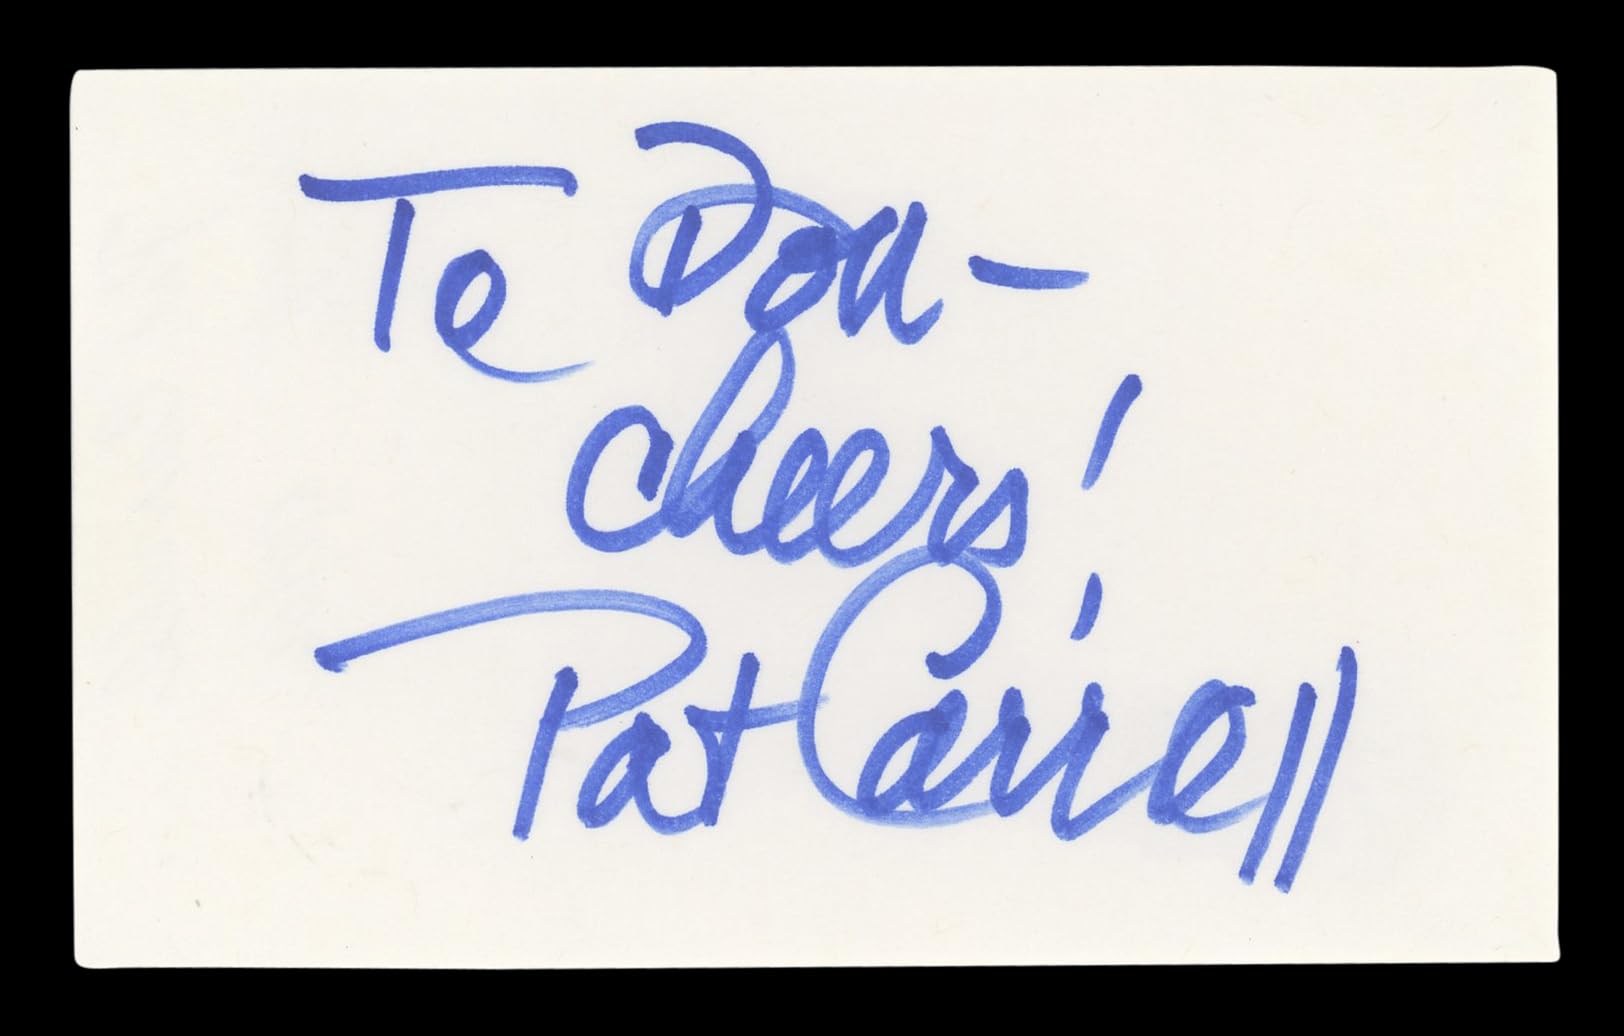 To Don-
cheers!
Pat Carroll